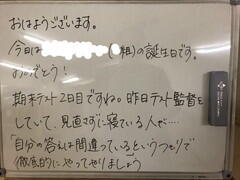 おはようございます。
今日は (組)の誕生日です。
おめでとう!
期末テスト2日目ですね。昨日テスト監督を
していて、見直さずに寝ている人が....
「自分の答えは間違っているというつもりで
徹底的にやってやりましょう